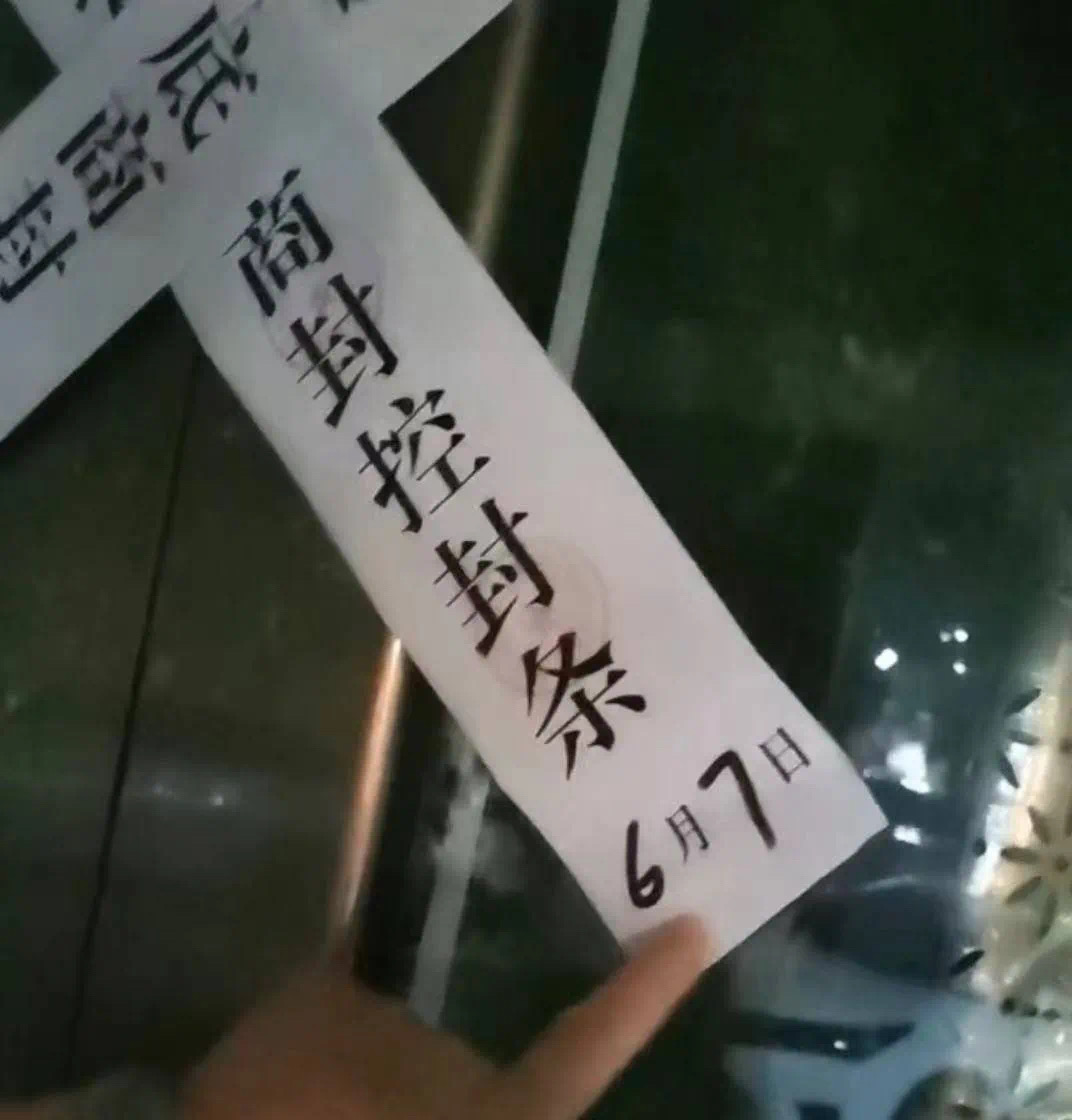 商封控封条
6月7日
底商封